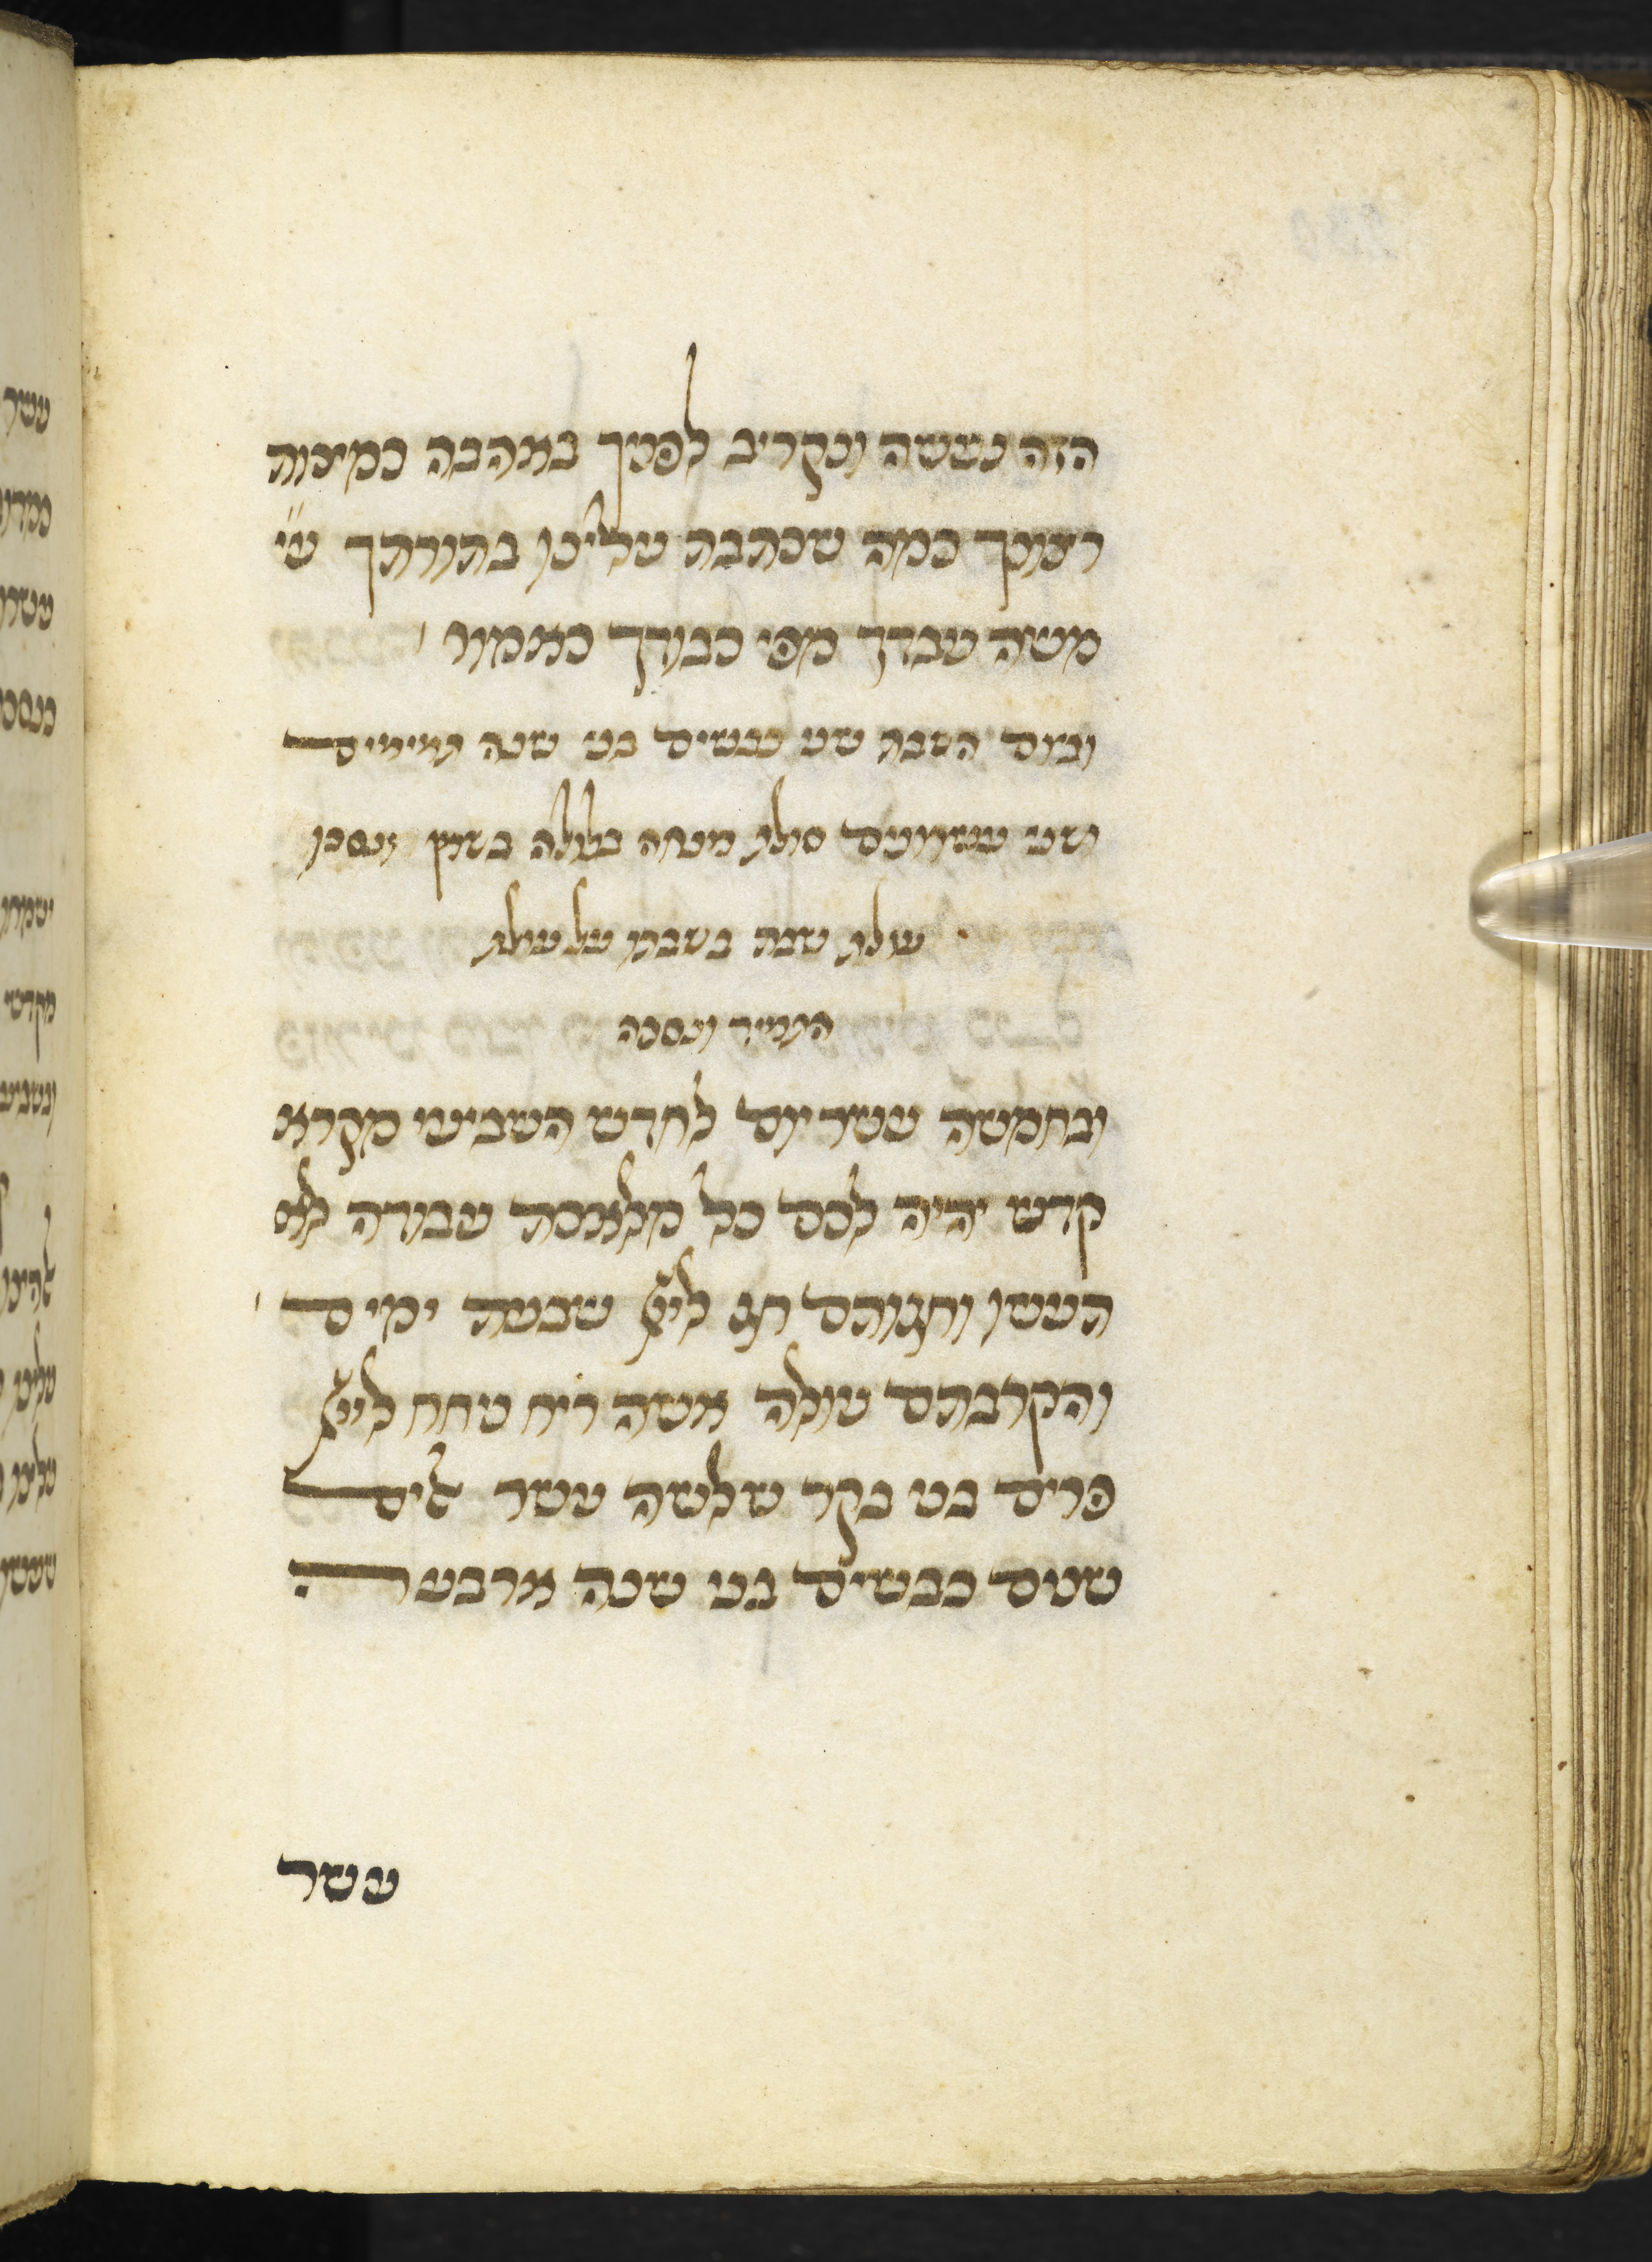 הזה נעשה ונקריב לפניך באהבה כמצות
רצונך כמה שכתבת עלינו בתורתך ע״י
משה עבדך מפי כבודך כאמור
וביום השבת שני כבשים בני שנה תמימים
ושני עשרונים סולת מנחה בלולה בשמן ונסכו
עולת שבת בשבתו על עולת
התמיד ונסכה
ובחמשה עשר יום לחדש השביעי מקרא
קדש יהיה לכם כל מלאכת עבודה לא
תעשו וחגותם חג ליי שבעת ימים
והקרבתם עולה אשה ריח ניחח ליי
פרים בני בקר שלשה עשר אילים
שנים כבשים בני שנה ארבעה
עשר